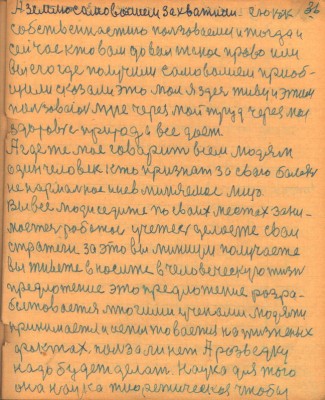 А землю самовольнем захватили. Её как
собственностию пользовались и тогда и
сейчас кто вам дал вечное право или
вы его где получили самовольнем приоб-
щили сказали это моя я здесь живу и этим
пользовался через мой труд через мое
здоровье природа все дает
А где те мое говорить всем людям
один человек есть признат за свою болезнь
не нармалное и невминяемое лицо.
Вы все люди сидите по своих местах зани-
маетеся работой учетес делаете свои
за это вы получаете
вы пишете вносите в человеческую жизн
предложение это предложение разра-
батовается многими учеными людями
принимается и испытовается на жизненых
фактах полза ли нет А розведку
надо будет делат. Наука для того
она наука тиоретическоя чтобы